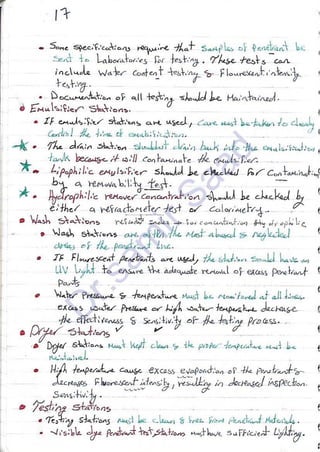 17
• Some specifications require that samples of penetrant be
sent to Laboratories for testing. These tests can
include water content testing & Flourescent intensity
testing.
• Documentation of all testing should be Maintained.
• Emulsifier Stations:
• IF emulsifier stations are used, Care must be taken to closely
Control the time of emulsification.
• The drain station shouldn't drain back into the emulsification
tank because it will contaminate the emulsifier.
• Lipophilic emulsifier should be checked for Contamination
by a removability test.
• Hydrophilic remover concentration should be checked by
either a refractometer test or Colorimetry.
• Wash Stations for concentration hydrophilic
• Wash Stations are the Most abused & neglected
of the penetrant line.
• IF Flurescent penetrants are used, the station should have an
UV light to ensure the adequate removal of excess penetrant
Parts
• Water Pressure & temperature Must be monitored at all times.
excess water Pressure or high water temperature decrease
the effectiveness & Sensitivity of the testing Process.
• Dryer Stations
• Dryer stations Must kept clean & the proper temperature must be
maintained.
• High temperature cause excess evaporation of the Penetrant &
decreases Fluorescent intensity, resulting in decreased inspection
Sensitivity.
• Testing Stations
• Testing stations must be clean & free from Penetrant Materials.
• Visible dye Penetrant test stations must have sufficient Lighting.